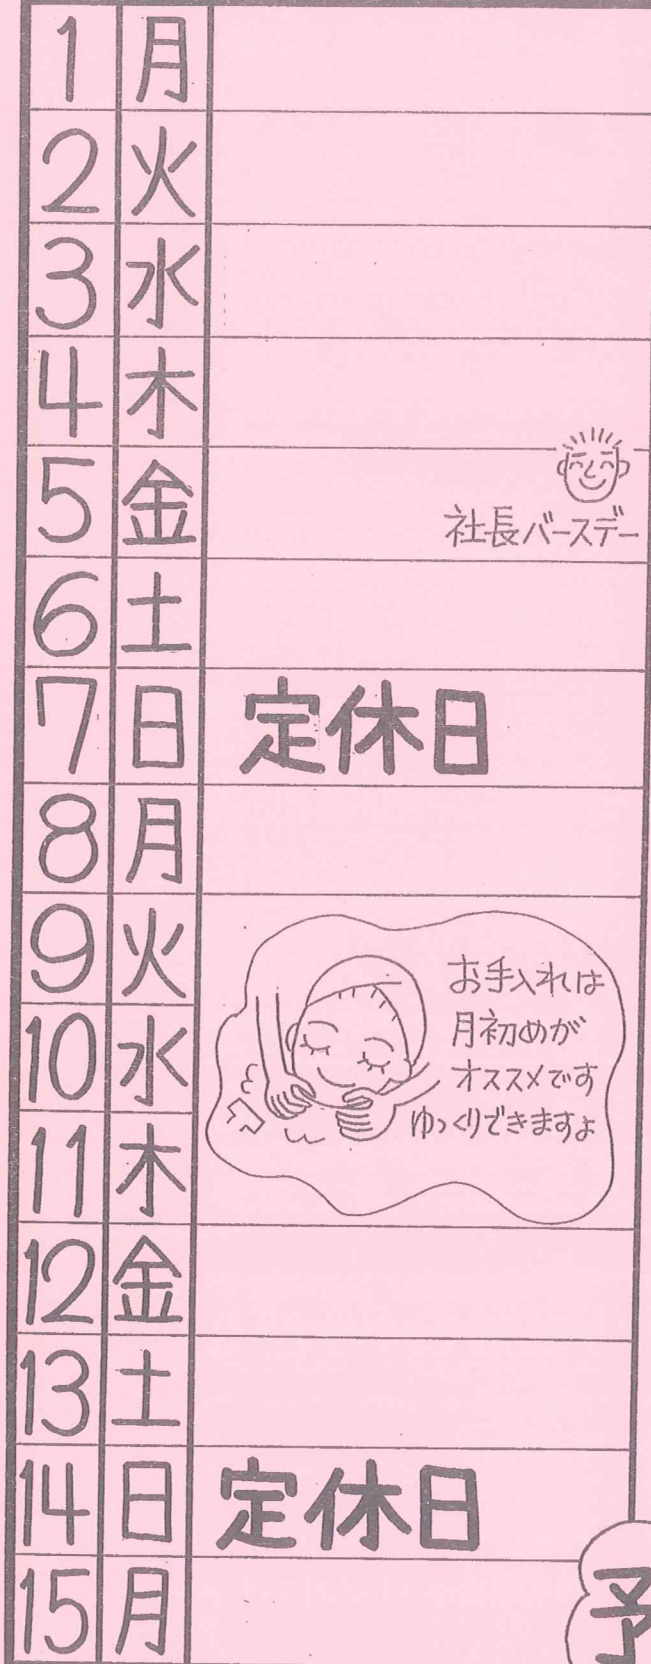 1 月
2 火
3 水
4 木
5 金
社長バースデー
6 土
7 日 定休日
8 月
9 火
10 水
11 木
お手入れは
月初めが
オススメです
ゆっくりできますよ
12 金
13 土
14 日 定休日
15 月
予